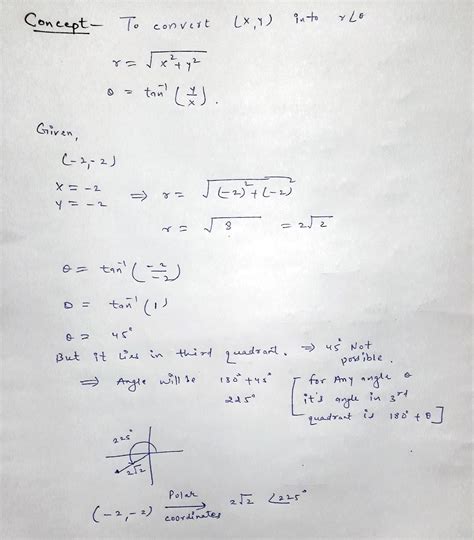 Concept- To convert (x,y) into r∠θ
r = √x²+y²
θ = tan⁻¹(y/x).
Given,
(-2,-2)
x = -2
y = -2 ⇒ r = √(-2)²+(-2)²
r = √8 = 2√2
θ = tan⁻¹(-2/-2)
θ = tan⁻¹(1)
θ = 45°
But it lies in third quadrant. ⇒ 45° Not possible.
⇒ Angle will be 180°+45°
225°
[for Any angle θ
it's angle in 3rd
quadrant is 180°+θ]
225°
2√2
(-2,-2) Polar coordinates → 2√2 ∠225°